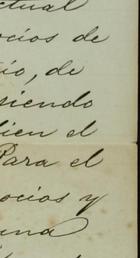 ctual
ocios de
io, de
siendo
bien el
Para el
ocios y
una